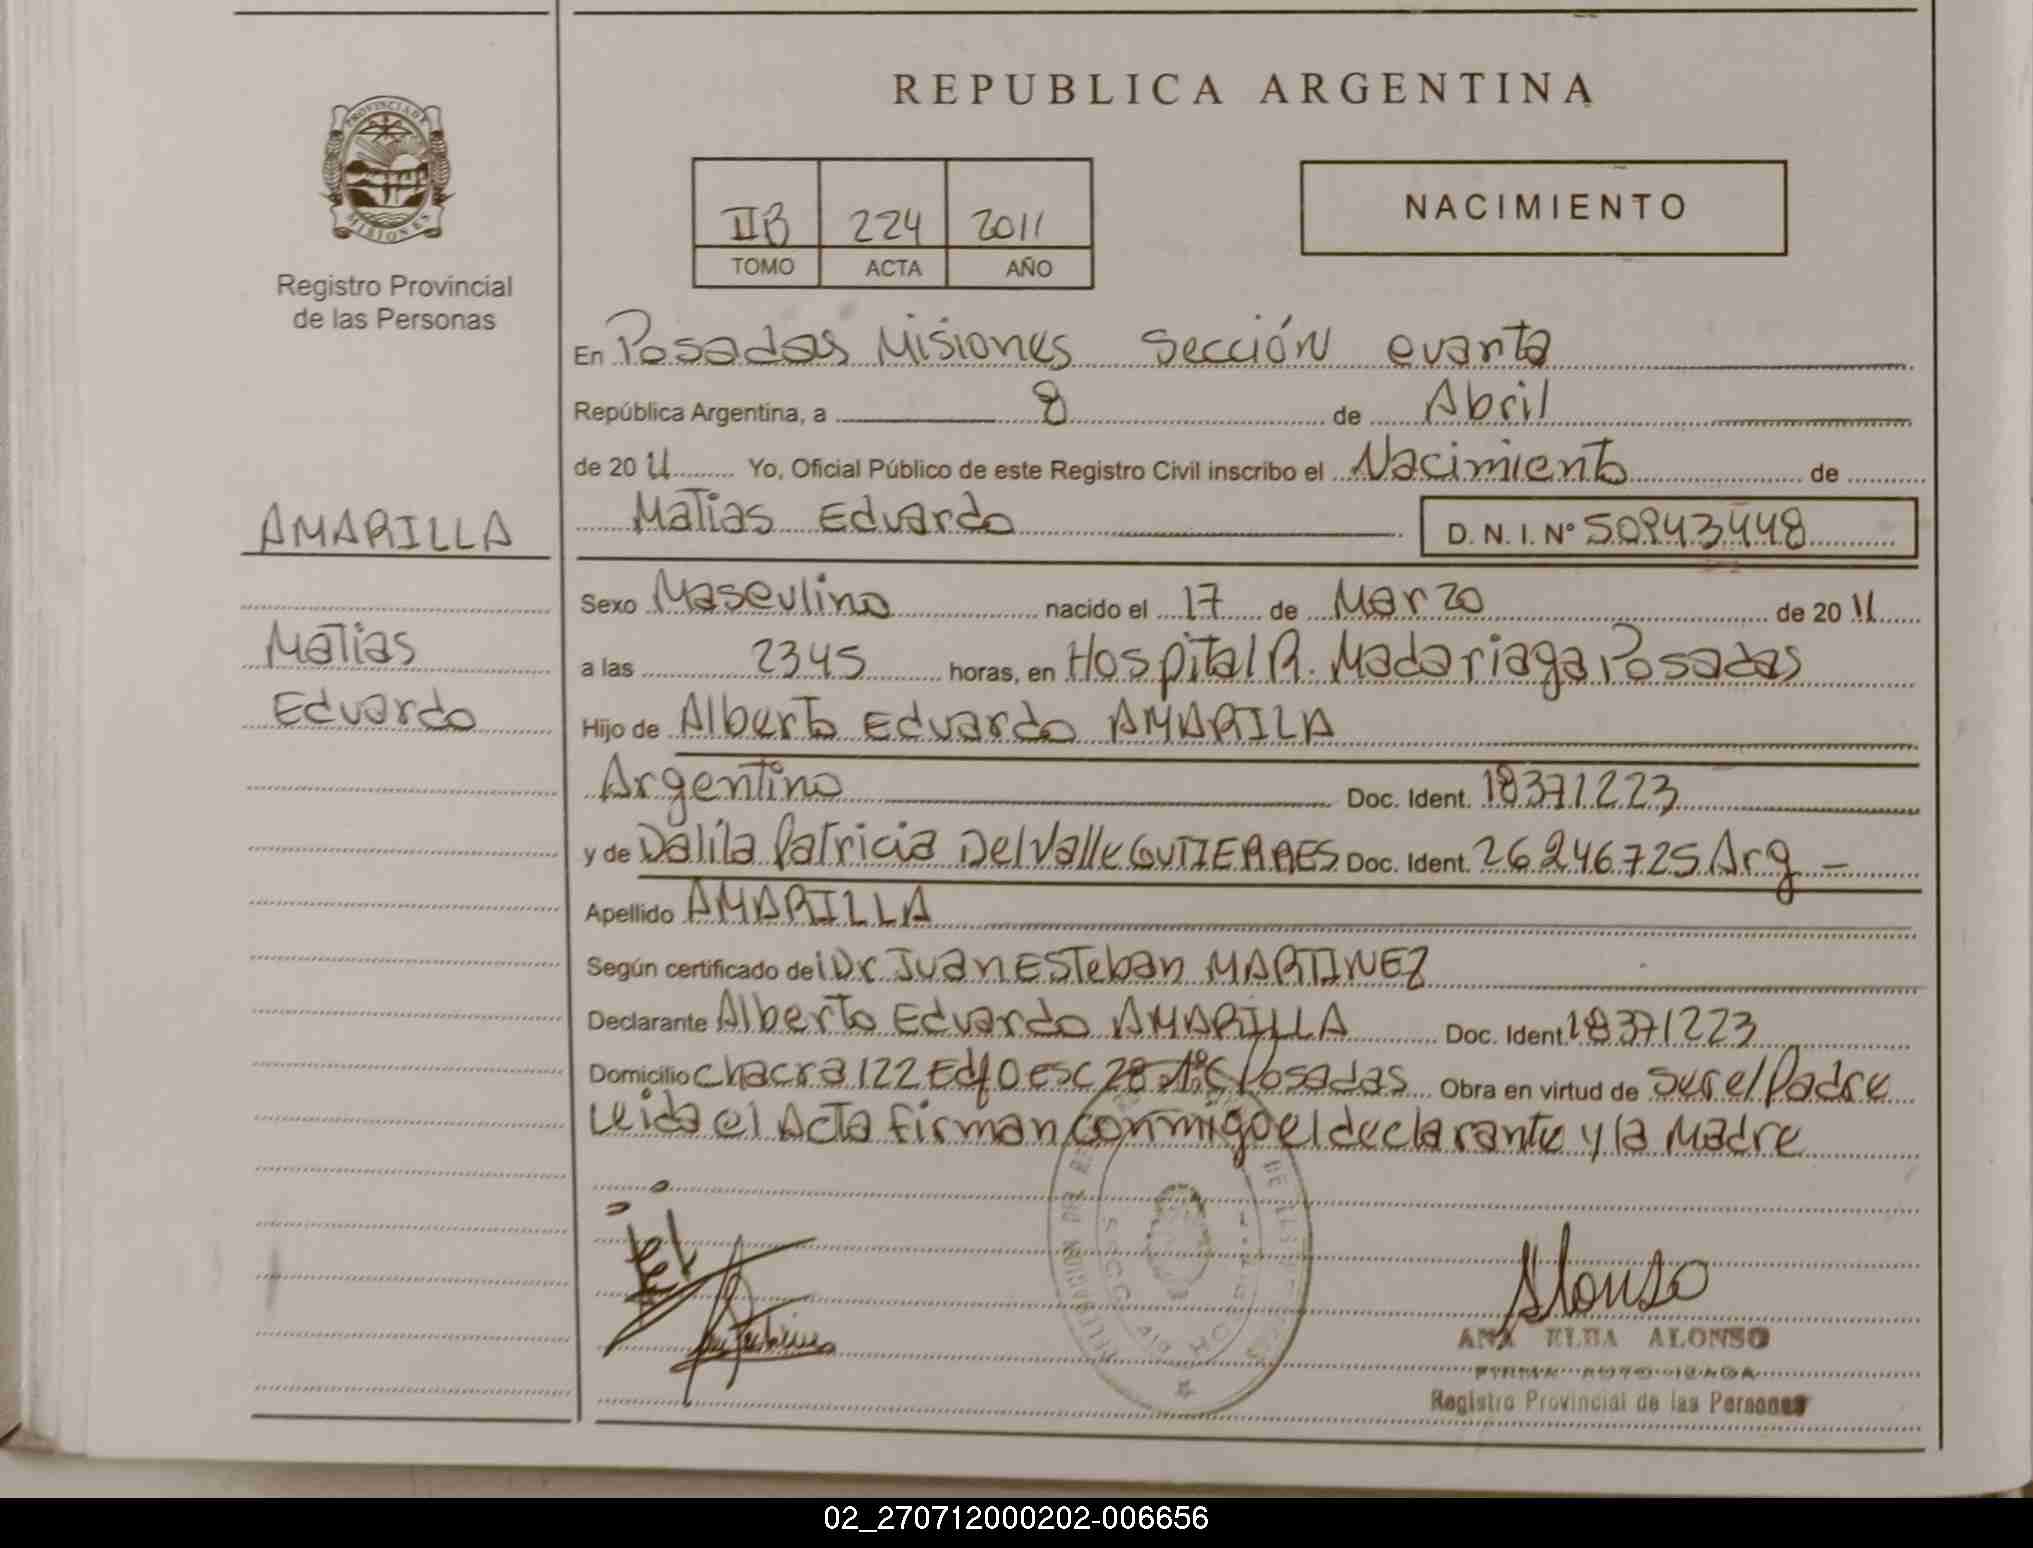 REPUBLICA ARGENTINA
PROVINCIA DE
MISIONES
Registro Provincial
de las Personas
IIB 224 2011
TOMO ACTA AÑO
NACIMIENTO
En Posadas Misiones Sección cuarta
República Argentina, a 8 de Abril
de 20 11 Yo, Oficial Público de este Registro Civil inscribo el Nacimiento de
AMARILLA
Matias Eduardo D. N. I. N° 50943448
Matias
Eduardo
Sexo Masculino nacido el 17 de Marzo de 20 11
a las 2345 horas, en Hospital R. Madariaga Posadas
Hijo de Alberto Eduardo AMARILA
Argentino Doc. Ident. 18371223
y de Dalila Patricia Del Valle GUTIERRES Doc. Ident. 26246725 Arg –
Apellido AMARILLA
Según certificado del Dr Juan Esteban MARTINEZ
Declarante Alberto Eduardo AMARILLA Doc. Ident. 18371223
Domicilio chacra 122 Edf 0 esc 28 1°C Posadas Obra en virtud de ser el Padre
Leida el Acta firman conmigo el declarante y la Madre
Alonso
ANA ELBA ALONSO
FIRMA AUTORIZADA
Registro Provincial de las Personas
02_270712000202-006656